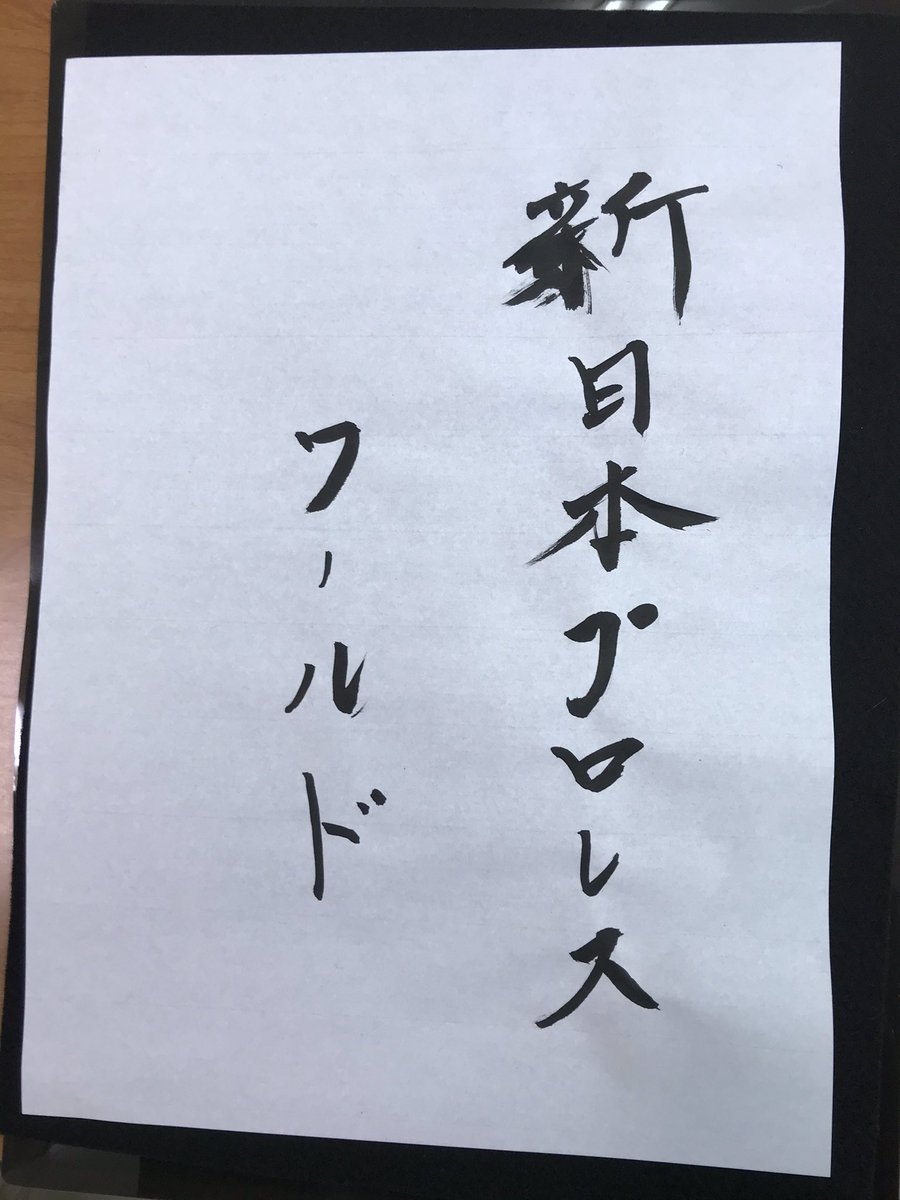 新日本プロレス
ワールド